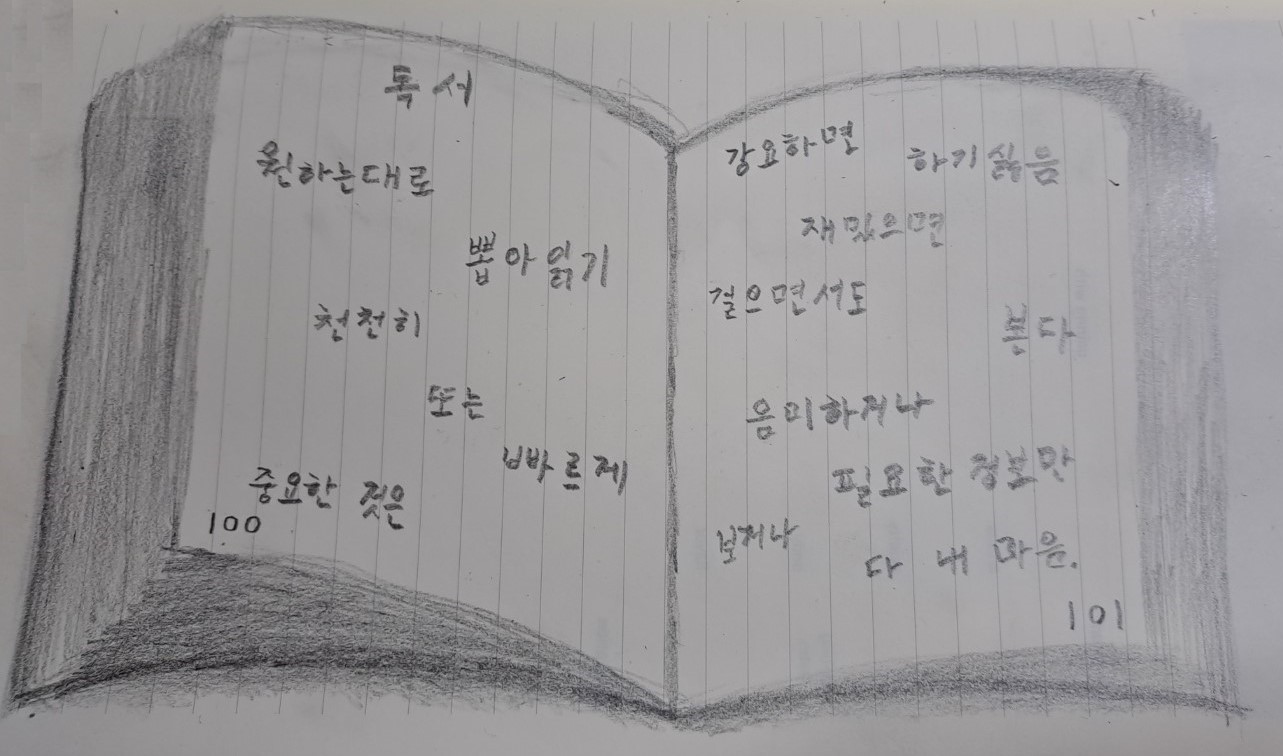 독서
원하는대로
뽑아읽기
천천히
또는
빠르게
중요한 것은
100
강요하면 하기싫음
재밌으면
걸으면서도
본다
음미하거나
필요한 정보만
보거나
다 내 마음.
101